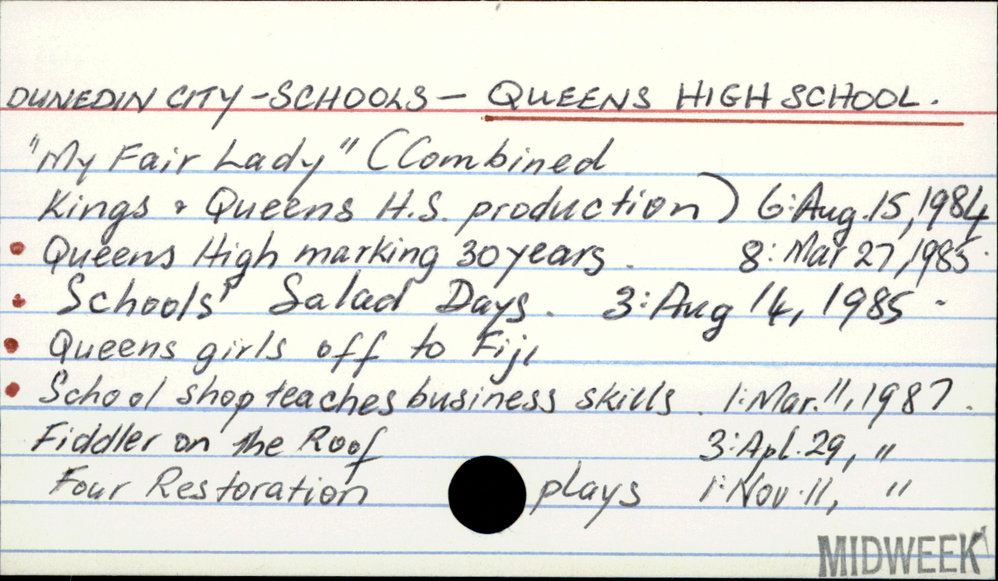 DUNEDIN CITY - SCHOOLS - QUEENS HIGH SCHOOL.
"My Fair Lady" (Combined
Kings & Queens H.S. production) 6: Aug. 15, 1984
• Queens High marking 30 years. 8: Mar 27, 1985.
• Schools' Salad Days. 3: Aug 14, 1985.
• Queens girls off to Fiji
• School shop teaches business skills. 1: Mar. 11, 1987.
Fiddler on the Roof 3: Apl. 29, "
Four Restoration plays 1: Nov. 11, "
MIDWEEK